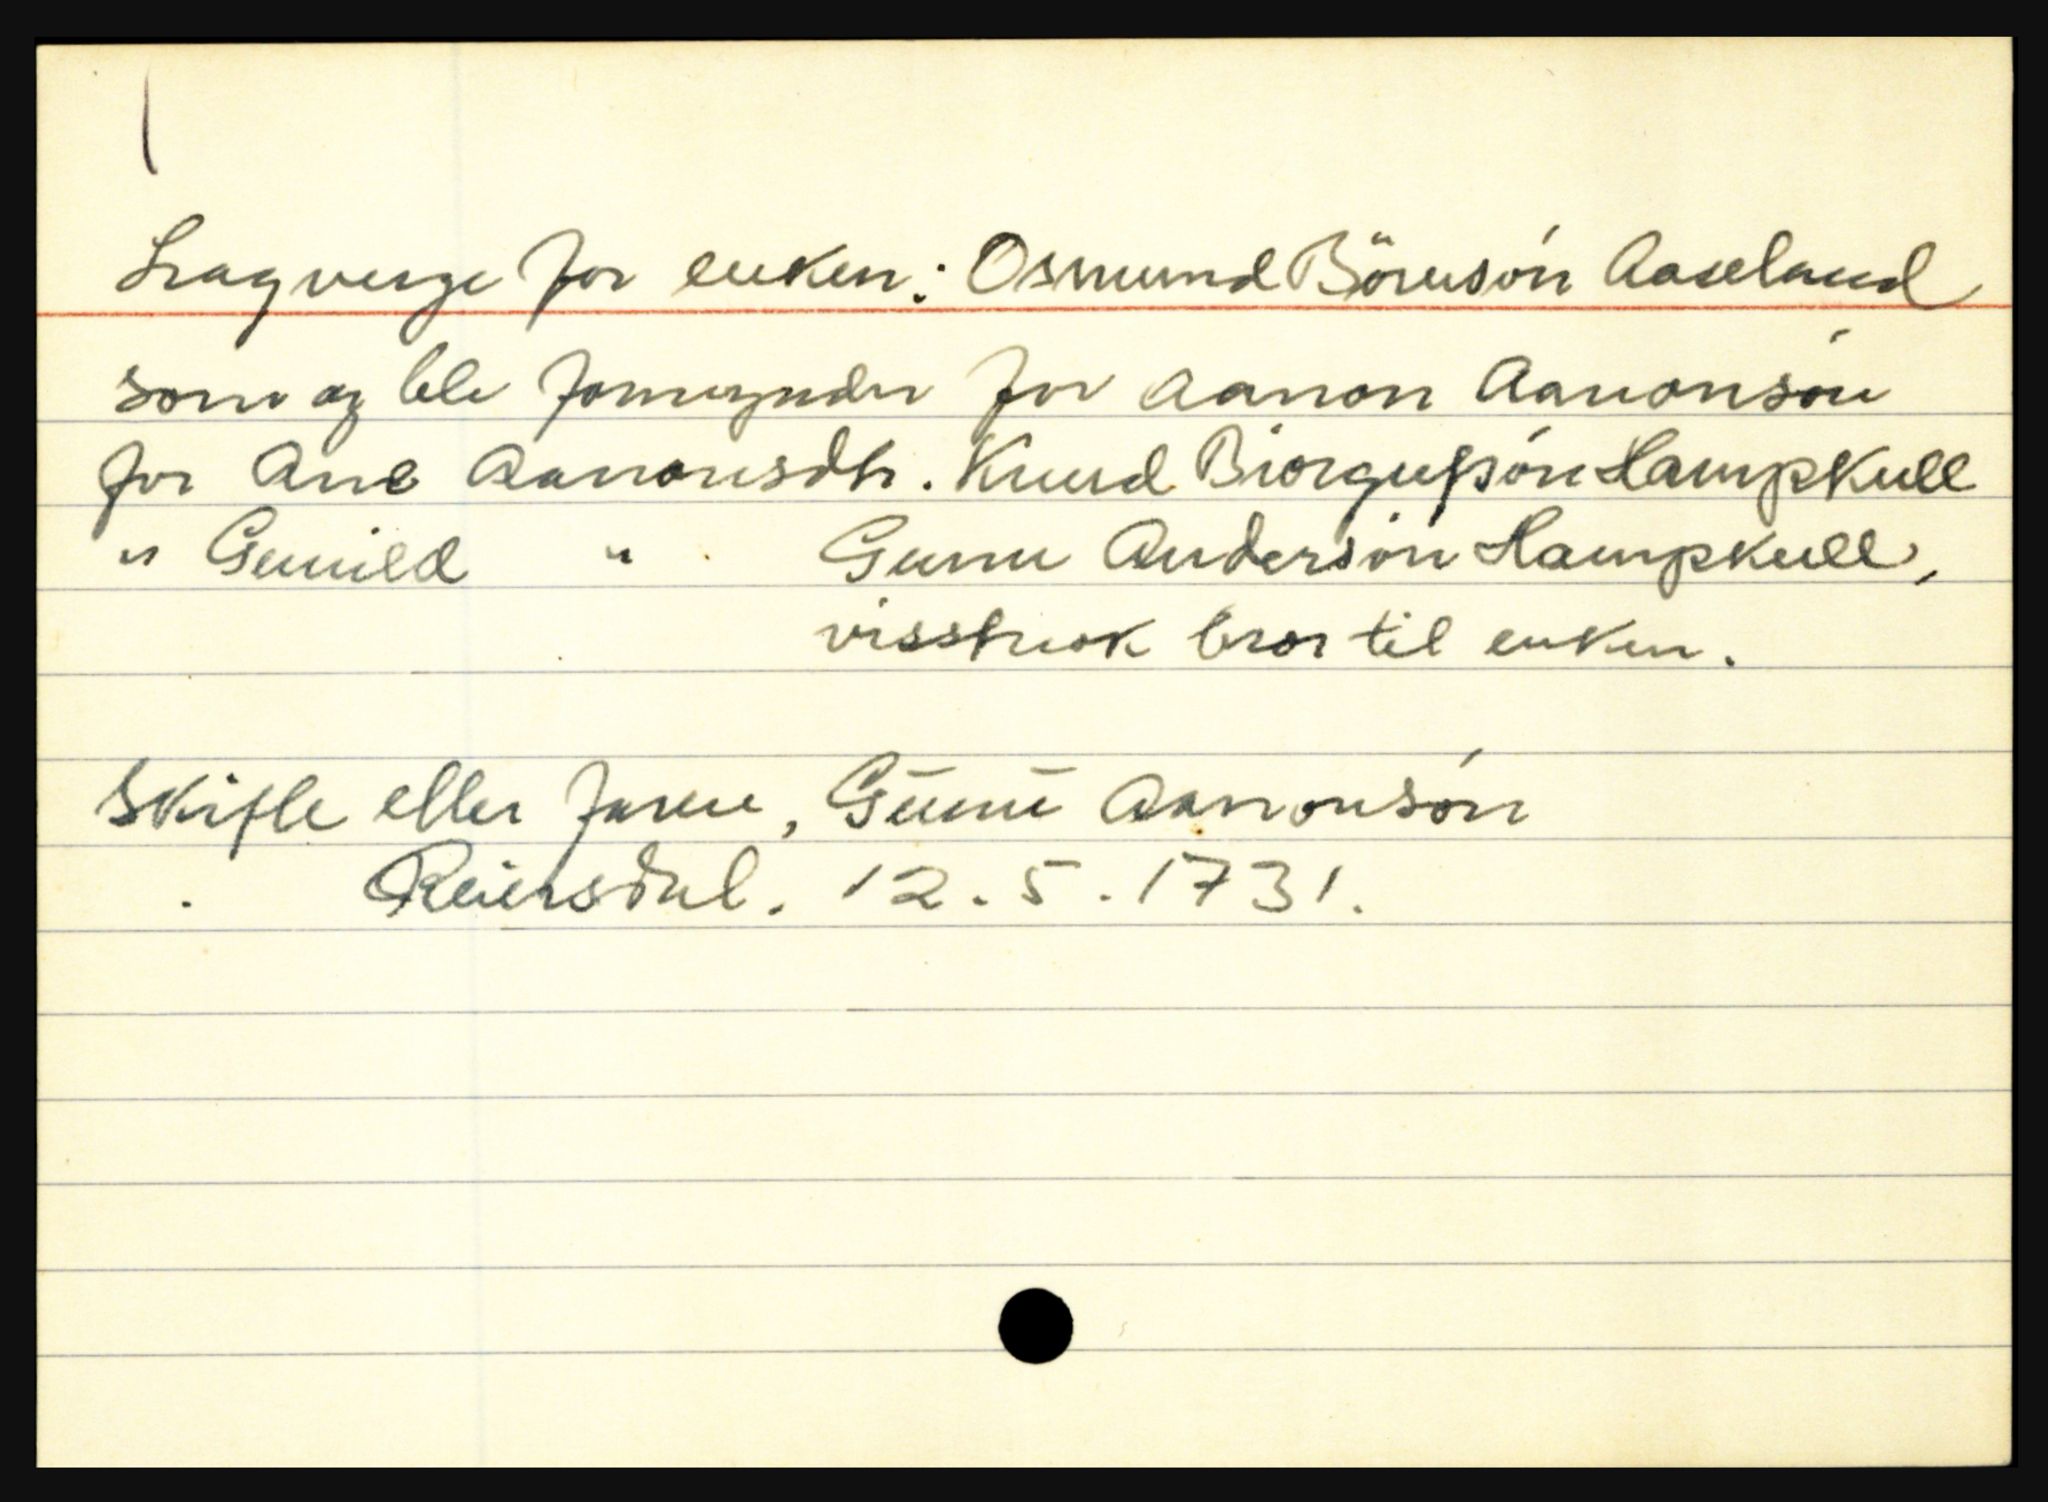 Lagverge for enken: Osmund Börusón Aaseland
som og ble formynder for Aanon Aanonsón
for Ane Aanonsdtr. Knud Biorgufsón Hampkull
" Gunild " Gunu Andersón Hampkull,
visstnok bror til enken.
Skifte etter faren, Gunu Aanonsón
Reiersdal. 12.5.1731.